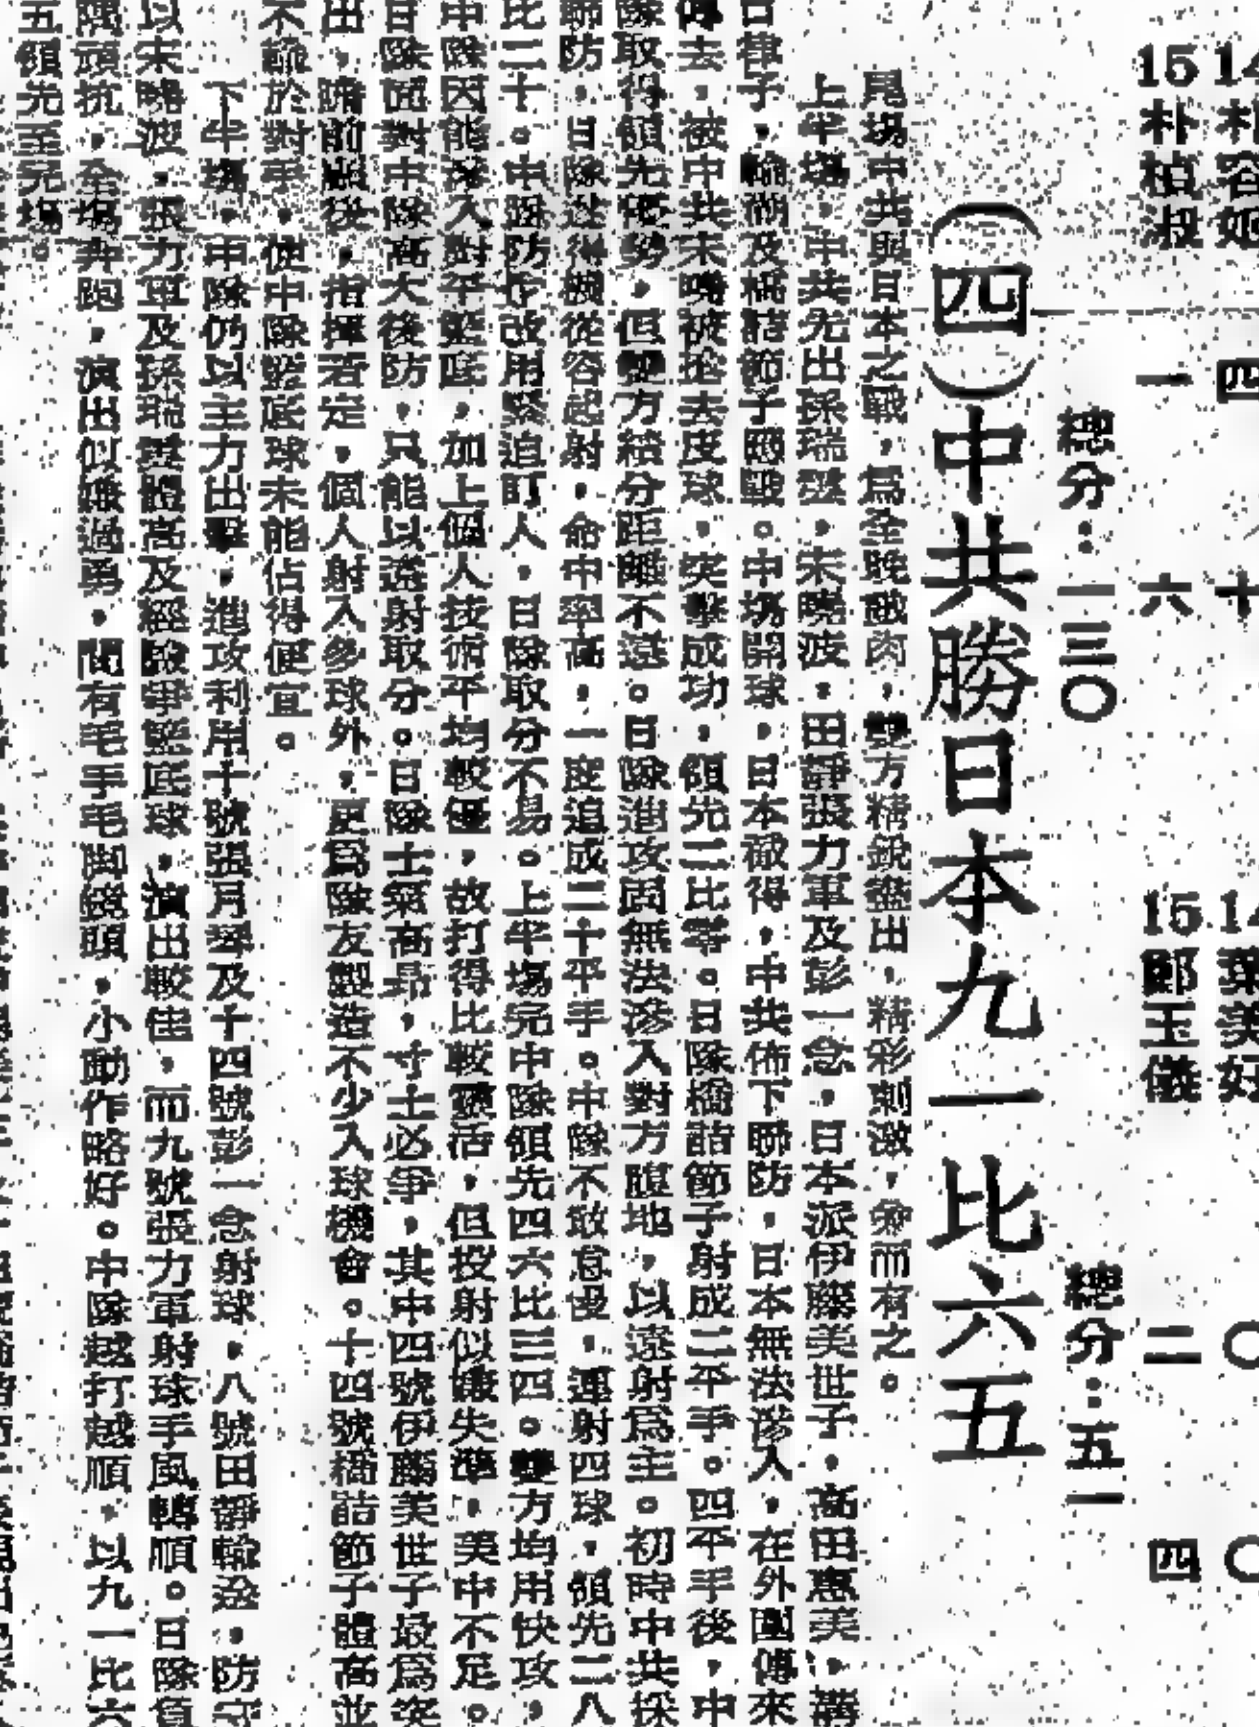 14朴容姬 四 十
15朴楨淑 一 六
14葉美好 〇 〇
15鄭玉儀 二 四
總分：一三〇
總分：五一
（四）中共勝日本九一比六五
尾場中共與日本之戰，爲全晚戲肉，雙方精銳盡出，精彩刺激，兼而有之。
上半場，中共先出孫瑞雲，宋曉波，田靜張力軍及彭一念，日本派伊藤美世子，高田惠美，
日律子，及橋詰節子應戰。中場開球，日本獲得，中共佈下聯防，日本無法滲入，在外圍傳來
傳去，被中共宋曉波搶去皮球，突擊成功，領先二比零。日隊橋詰節子射成二平手。四平手後，中
隊取得領先優勢，但雙方績分距離不遠。日隊進攻因無法滲入對方腹地，以遠射爲主。初時中共採
聯防，日隊故得機從容起射，命中率高，一度追成二十平手。中隊不敢怠慢，連射四球，領先二八
比二十。中隊防守改用緊迫盯人，日隊取分不易。上半場完中隊領先四六比三四。雙方均用快攻，
中隊因能深入對平籃底，加上個人技術平均較優，故打得比較靈活，但投射似嫌失準，美中不足。
日隊面對中隊高大後防，只能以遠射取分。日隊士氣高昂，寸土必爭，其中四號伊藤美世子最爲突
出，瞻前顧後，指揮若定，個人射入多球外，更爲隊友製造不少入球機會。十四號橋詰節子體高並
不輸於對手，使中隊籃底球未能佔得便宜。
下半場，中隊仍以主力出擊，進攻利用十號張月琴及十四號彭一念射球，八號田靜輸送，防守
以宋曉波，張力軍及孫瑞雲體高及經驗爭籃底球，演出較佳，而九號張力軍射球手風轉順。日隊負
隅頑抗，全場奔跑，演出似嫌過勇，間有毛手毛脚鏡頭，小動作略好。中隊越打越順，以九一比六
五領先至完場。